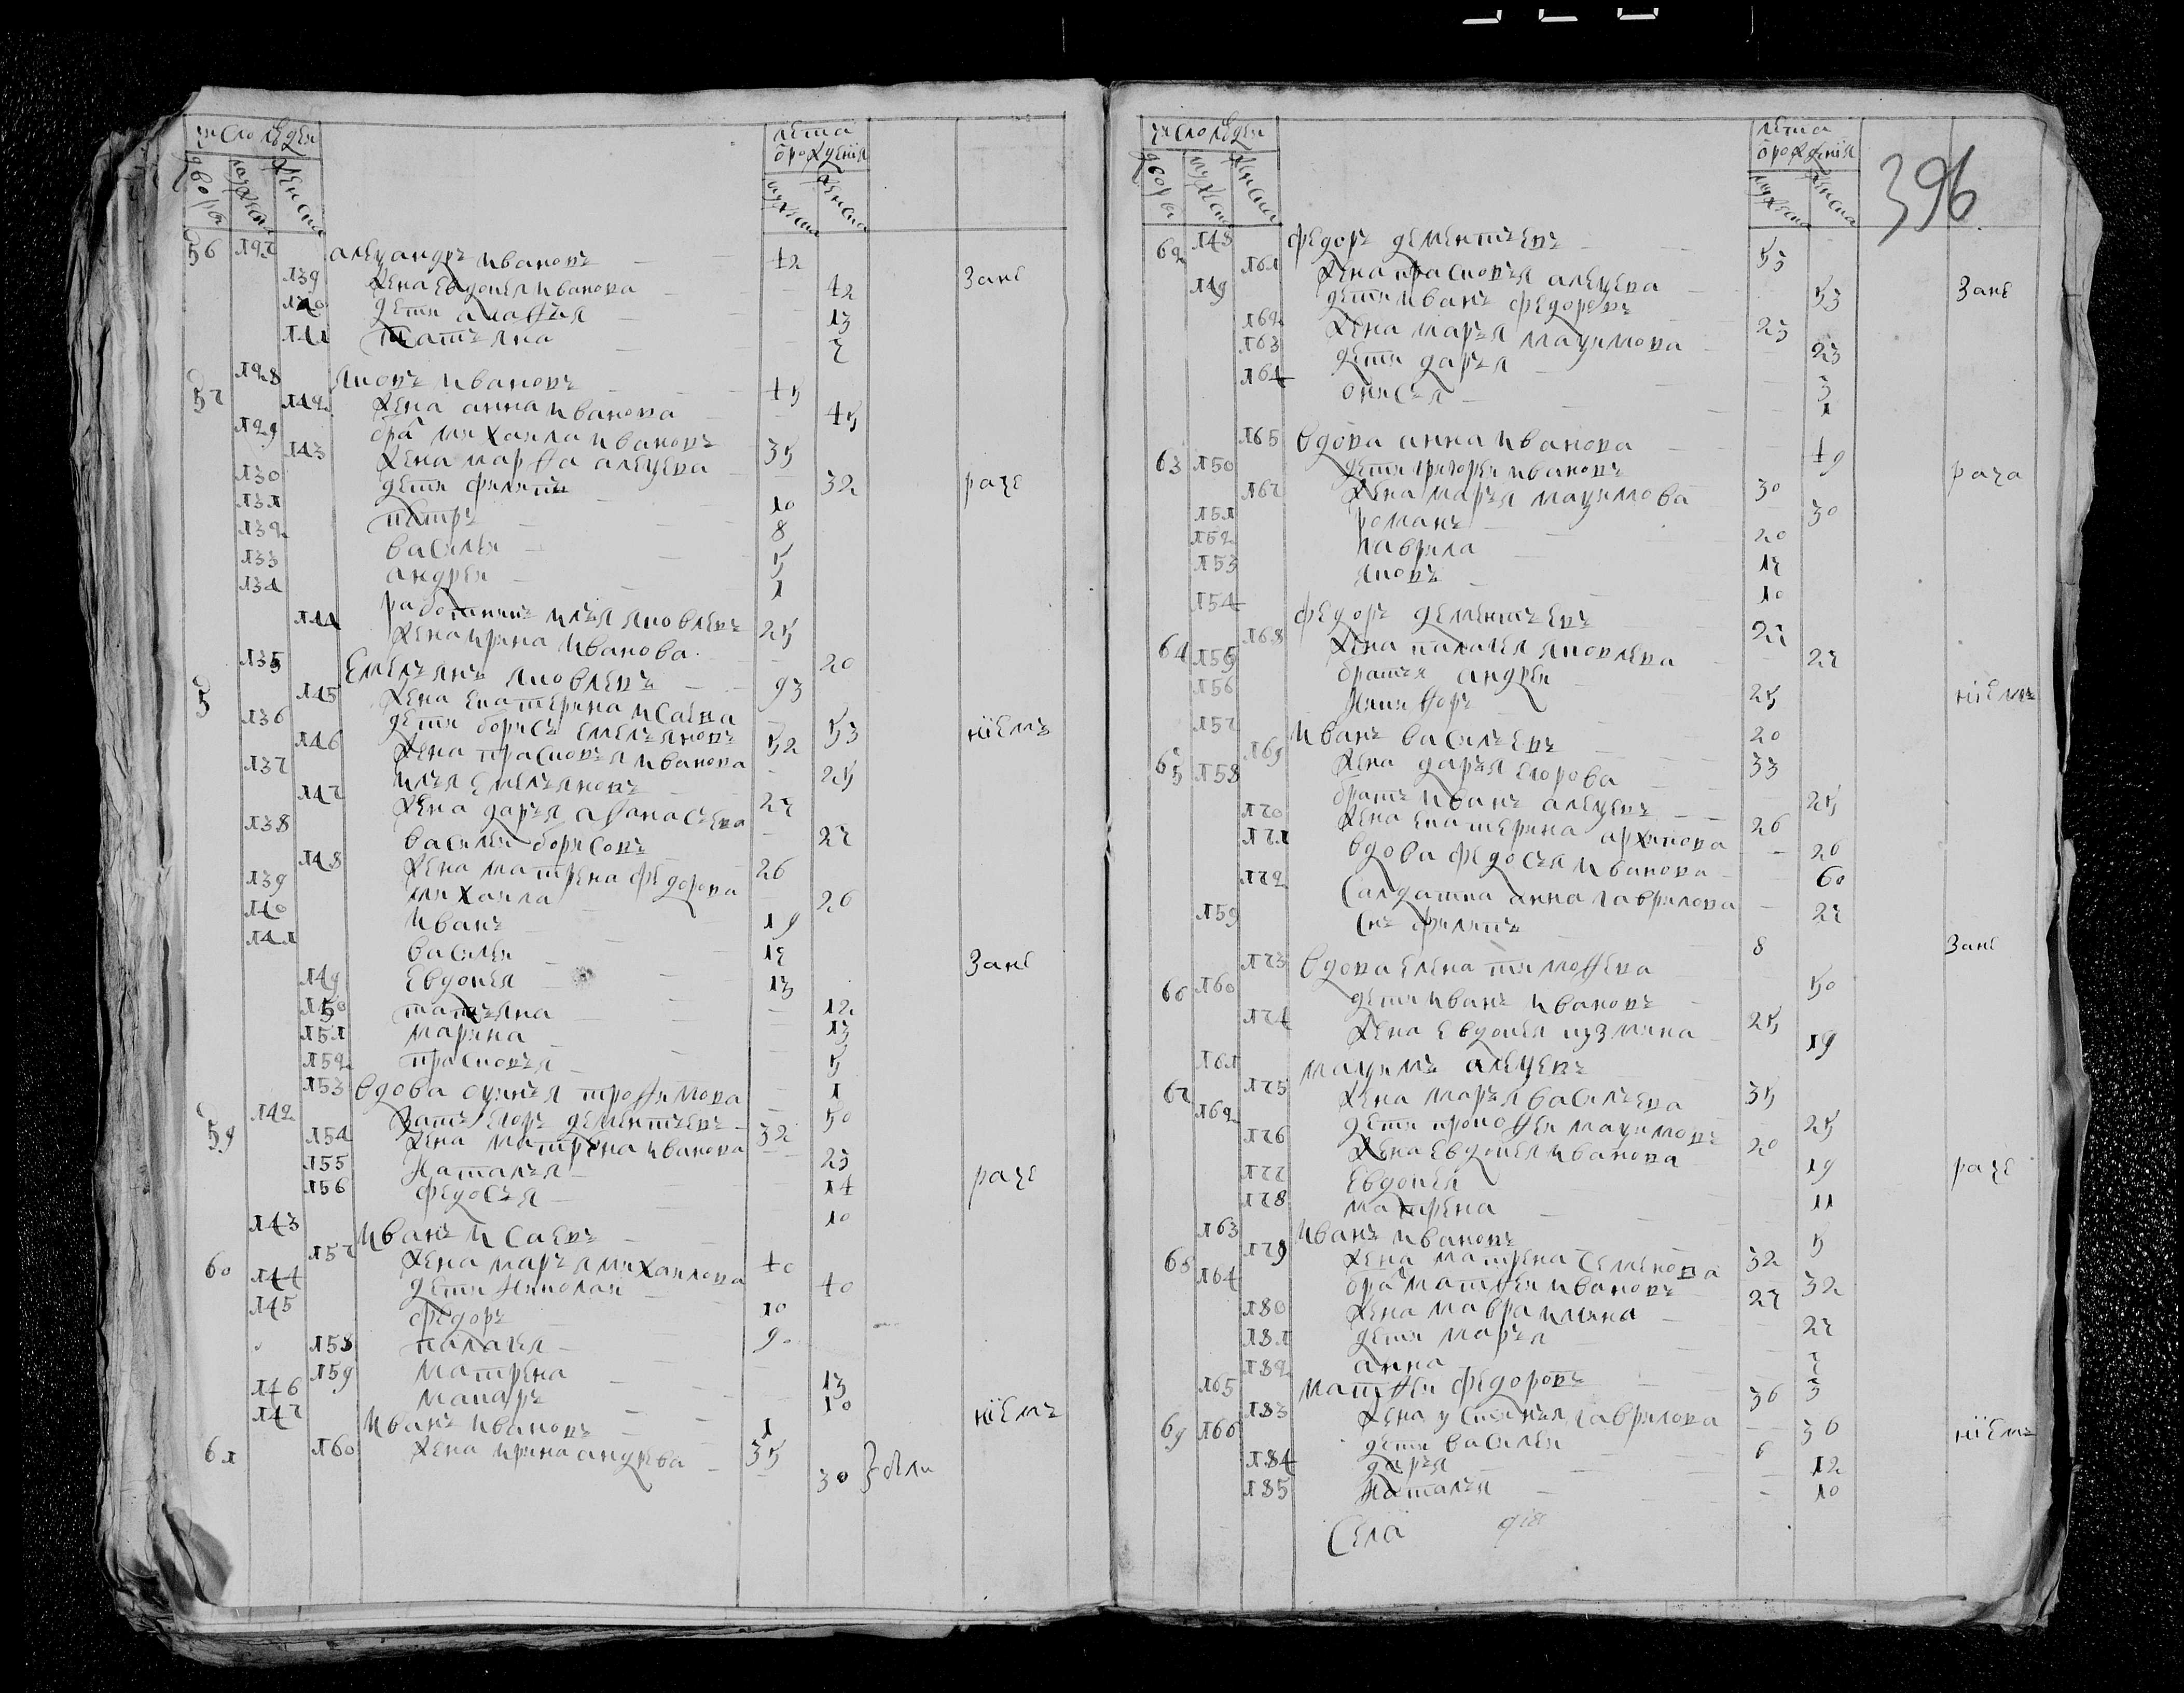 число людеи
лета
ѿ рождения
двора
мужеска
женска
мужеска
женска
56 127 алеѯандръ ивановъ 42
139 жена евдокея иванова 42
140 дети агафия 13
141 татьяна 7
57 128 яковъ ивановъ 45
142 жена анна иванова 45
129 бра михаила ивановъ 35
143 жена марфа алеѯева 32
130 дети филипъ 10
131 петръ 8
132 василеи 5
133 андреи 1
134 работникъ илья яковлевъ 25
144 жена ирина иванова 20
135 емельянъ яковлевъ 93
145 жена екатерина исаева 53
136 дети борисъ емельяновъ 52
146 жена прасковья иванова 25
137 илья емельяновъ 27
147 жена дарья афанасьева 27
138 василеи борисовъ 26
148 жена матрена федорова 26
139 михаила 19
140 иванъ 17
141 василеи 13
149 евдокея 12
150 татьяна 13
151 марина 5
152 прасковья 1
153 вдова оуинья трофимова 50
59 142 зать егоръ дементьевъ 32
154 жена матрена иванова 23
155 наталья 14
156 федосья 10
143 иванъ исаевъ 40
60 157 жена марья михаилова 40
144 дети николаи 10
145 федоръ 9
158 палагея 13
159 матрена 10
146 макаръ 1
147 иванъ ивановъ 35
61 160 жена ирина андреева 30
зане
раче
ниемъ
зане
раче
ниемъ
396
число людеи
лета
ѿ рождения
двора
мужеска
женска
мужеска
женска
62 148 федоръ дементьевъ 55
161 жена прасковья алеѯева 53
149 дети иванъ федоровъ 25
162 жена марья маѯимова 23
163 дети дарья 3
164 онисья 1
165 вдова анна иванова 49
63 150 дети григореи ивановъ 30
167 жена марья маѯимова 30
151 романъ 20
152 гаврила 17
153 яковъ 10
154 федоръ дементьевъ 27
64 168 жена палагея яковлева 27
155 братья андреи 25
156 никифоръ 20
157 иванъ васильевъ 33
65 169 жена дарья егорова 25
158 братъ иванъ алеѯевъ 26
170 жена екатерина архипова 20
171 вдова федосья иванова 60
172 салдатка анна гаврилова 27
159 снъ филипъ 8
173 вдова елена тимофеева 50
66 160 дети иванъ ивановъ 25
174 жена евдокея кузмина 19
161 маѯимъ алеѯевъ 35
67 175 жена марья васильева 25
162 дети прокофеи маѯимовъ 20
176 жена евдокея иванова 19
177 евдокея 11
178 матрена 5
163 иванъ ивановъ 32
68 179 жена матрена семенова 32
164 бра матфеи ивановъ 27
180 жена мавра илина 27
181 дети марья 7
182 анна 3
165 матфеи федоровъ 36
69 183 жена устинья гаврилова 36
166 дети василеи 6
184 дарья 12
185 наталья 10
села
зане
рача
ниемъ
зане
раче
ниемъ